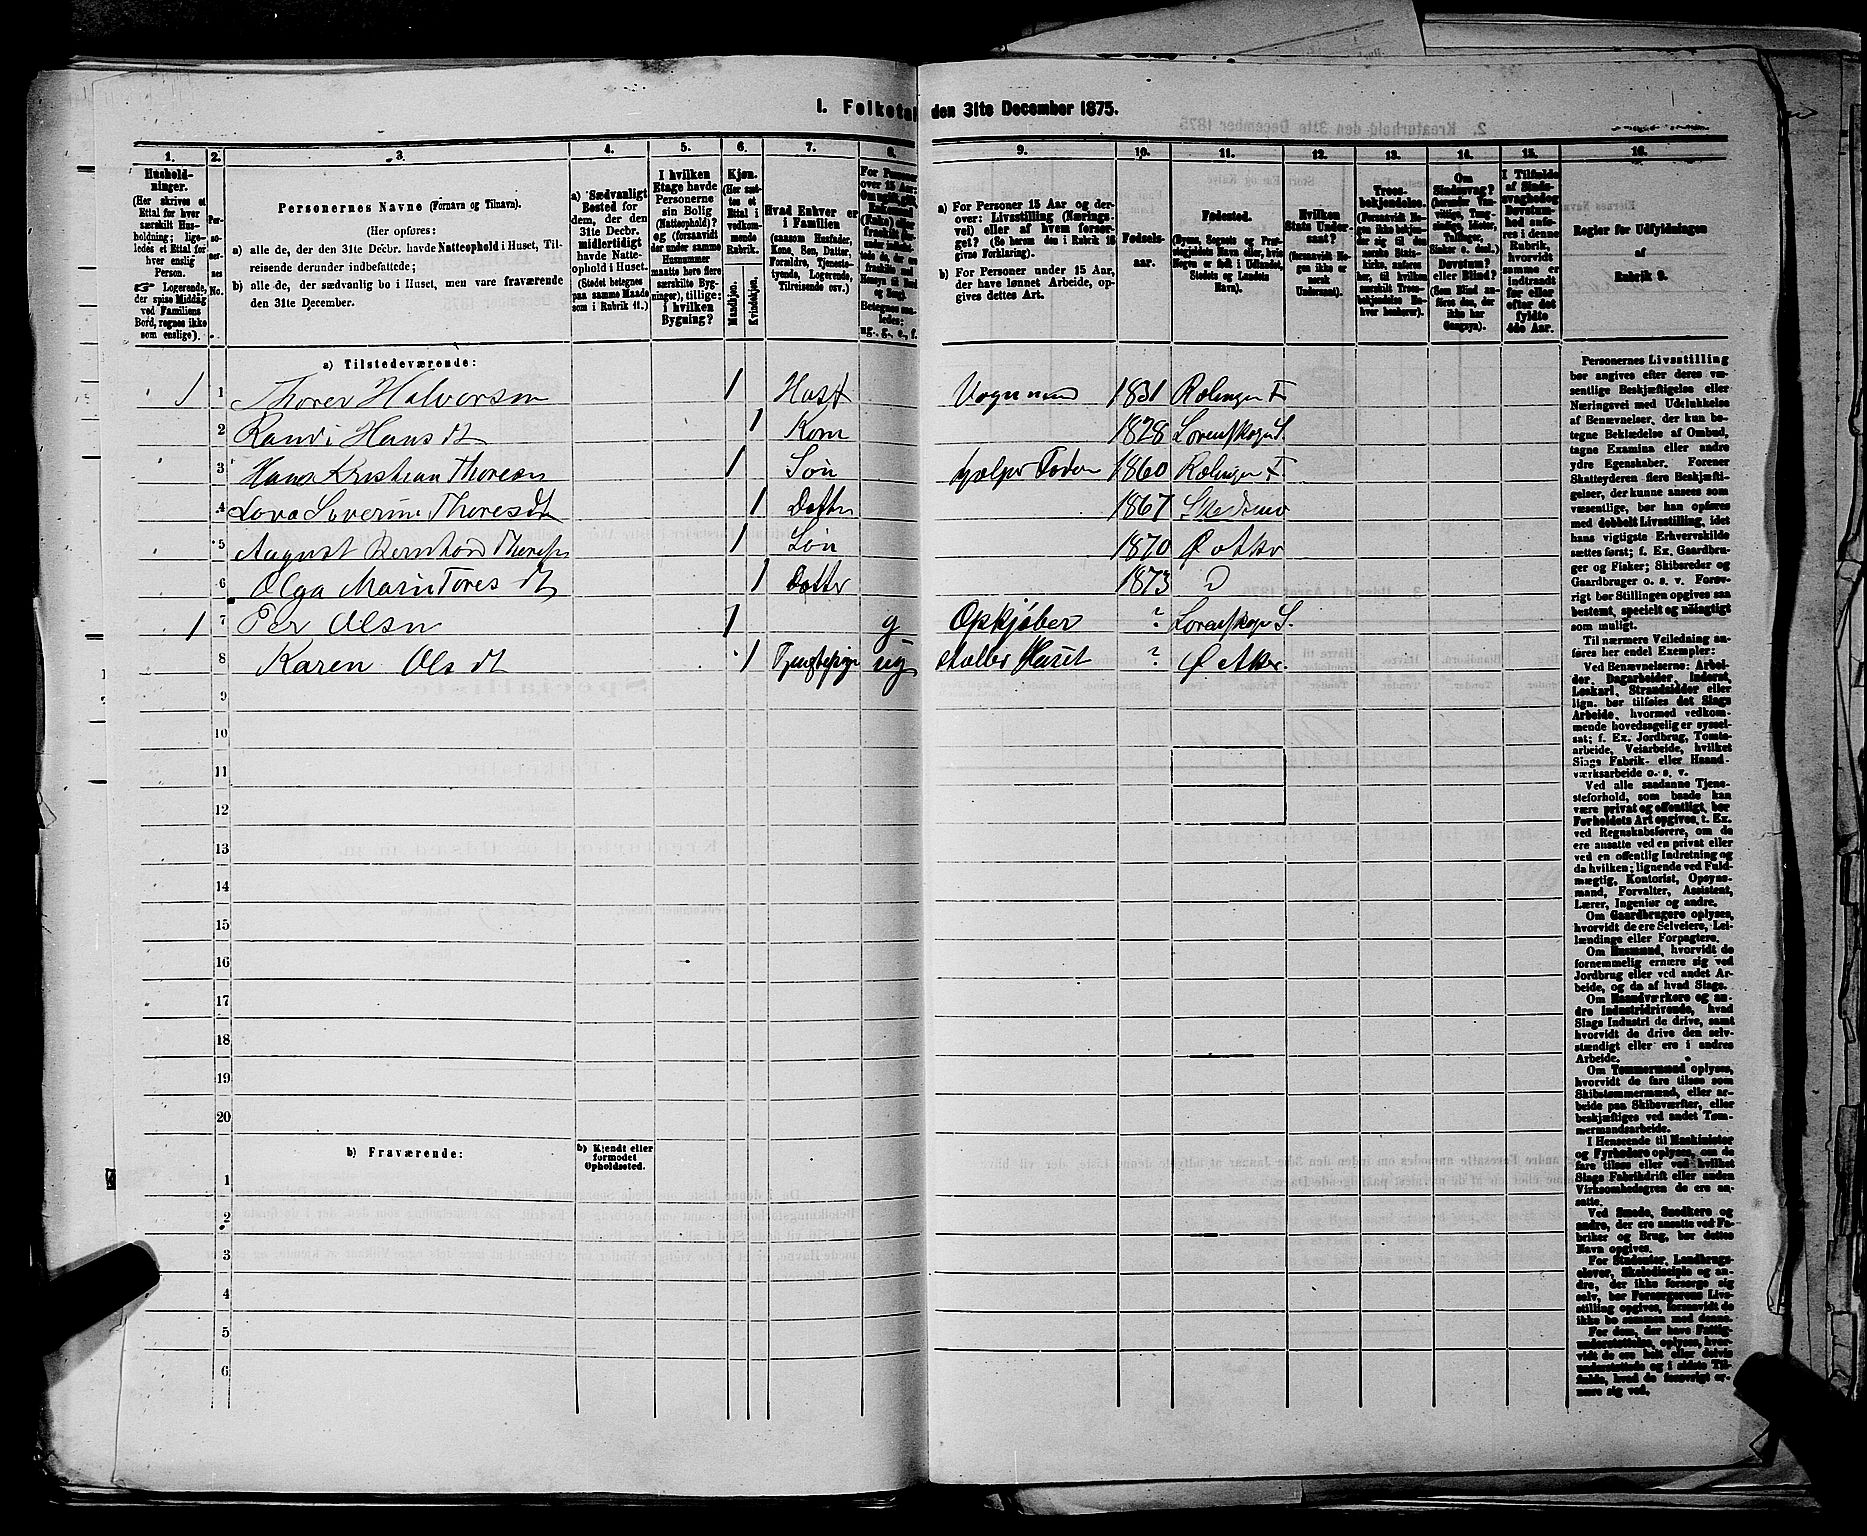 1. Folketal den 31te December 1875.
1. 2. 3. 4. 5. 6. 7. 8. 9. 10. 11. 12. 13. 14. 15. 16.
Hushold-
ninger.
(Her skrives et
Ettal for hver
særskilt Hus-
holdning; lige-
ledes et Ettal for
hver enslig
Person.
☞ Logerende,
der spise Middag
ved Familiens
Bord, regnes ikke
som enslige).
Per-
so-
ner-
nes
No.
Personernes Navne (Fornavn og Tilnavn).
(Her opføres:
a) alle de, der den 31te Decbr. havde Natteophold i Huset, Til-
reisende derunder indbefattede;
b) alle de, der sædvanlig bo i Huset, men vare fraværende
den 31te December.
a) Sædvanligt
Bosted for
dem, der den
31te Decbr.
midlertidigt
havde Natte-
ophold i Huset.
(Stedet betegnes
paa samme Maade
som i Rubrik 11.)
I hvilken
Etage havde
Personerne
sin Bolig
(Natteophold)?
og (forsaavidt
der under samme
Husnummer
maatte høre flere
særskilte Byg-
ninger), tillige:
i hvilken
Bygning?
Kjøn.
(Her sæt-
tes et
Ettal i
vedkom-
mende
Rubrik.
Mandkjøn.
Kvindekjøn.
Hvad Enhver er
i Familien
(saasom Husfader,
Kone, Søn, Datter,
Forældre, Tjeneste-
tyende, Logerende,
Tilreisende osv.)
For Personer
over 15 Aar:
a) For Personer 15 Aar og der-
over: Livsstilling (Nærings-
vei) eller af hvem forsør-
get? (Se herom den i Rubrik 16
givne Forklaring).
b) For Personer under 15 Aar,
der have lønnet Arbeide, op-
gives dettes Art.
Fødsels-
aar.
Fødested.
(Byens, Sognets og Præ-
stegjeldets Navn eller, hvis
Nogen er født i Udlandet,
Stedets og Landets
Navn).
Hvilken
Stats Under-
saat?
(forsaavidt No-
gen ikke er
norsk
Undersaat).
Troes-
bekjendelse.
(Forsaavidt No-
gen ikke bekjen-
der sig til den
norske Stats-
kirke, anføres
her, til hvilken
særskilt Troes-
bekjendelse En-
hver henhører).
Om
Sindssvag?
Døvstum?
eller Blind?
(Som Blind an-
føres den, der
ikke har
Gangsyn).
I Tilfælde
af Sinds-
svaghed og
Døvstum-
hed anfø-
res i denne
Rubrik,
hvorvidt
samme er
indtraadt
før eller
efter det
fyldte
4de Aar.
Regler for Udfyldningen
af
Rubrik 9.
a) Tilstedeværende:
1 1 Thorer Halvorsen 1 Husf Vognmand 1831 Rælingen F
2 Randi Hansdt 1 Kone 1828 Lørenskogen S.
3 Hans Kristian Thoresen 1 Søn hjelper Fader 1860 Rælingen F
4 Lova Severine Thoresdt 1 Datter 1867 Skedsmo
5 August Bernhard Thoresen 1 Søn 1870 Ø Aker
6 Olga Marin Toresdt 1 Datter 1873 D
1 7 Per Olsen 1 g Opkjøber ? Lørenskogen S.
8 Karen Olsdt 1 Tjenestepige ug steller Huset ? Ø Aker.
9
10
11
12
13
14
15
16
17
18
19
20
b) Fraværende: b) Kjendt eller
formodet
Opholdssted.
1
2
3
4
5
6
Personernes Livsstilling
bør angives efter deres væ-
sentlige Beskjæftigelse eller
Næringsvei med Udelukkelse
af Benævnelser, der kun be-
tegne Beklædelse af Ombud,
tagne Examina eller andre
ydre Egenskaber. Forener
Skatteyderen flere Beskjæfti-
gelser, der kunne ansees som
væsentlige, bør han opføres
med dobbelt Livsstilling, idet
hans vigtigste Erhvervskilde
sættes først; f. Ex. Gaardbru-
ger og Fisker; Skibsreder og
Gaardbruger o. s. v. Forøv-
rigt bør Stillingen opgives saa
bestemt, specielt og nøiagtigt
som muligt.
Til nærmere Veiledning an-
føres her endel Exempler:
Ved Benævnelserne: Arbei-
der, Dagarbeider, Inderst,
Løskarl, Strandsidder eller
lign. bør tilføies det Slags
Arbeide, hvormed vedkom-
mende hovedsagelig er syssel-
sat; f. Ex. Jordbrug, Tomte-
arbeide, Veiarbeide, hvilket
Slags Fabrik- eller Haand-
værksarbeide o. s. v.
Ved alle saadanne Tjene-
steforhold, som baade kan
være privat og offentligt, bør
Forholdets Art opgives, t. Ex.
ved Regnskabsførere, om de
ere ansatte ved en privat eller
ved en offentlig Indretning og
da hvilken; lignende ved Fuld-
mægtig, Kontorist, Opsyns-
mand, Forvalter, Assistent,
Lærer, Ingeniør og andre.
Om Gaardbrugere oplyses,
hvorvidt de ere Selveiere, Lei-
lændinge eller Forpagtere.
Om Husmænd, hvorvidt de
fornemmelig ernære sig ved
Jordbrug eller ved andet Ar-
beide, og da af hvad Slags.
Om Haandværkere og an-
dre Industridrivende, hvad
Slags Industri de drive, samt
hvorvidt de drive den selv-
stændigt eller ere i andres
Arbeide.
Om Tømmermænd oplyses,
hvorvidt de fare tilsøs som
Skibstømmermænd, eller ar-
beide paa Skibsværfter, eller
beskjæftiges ved andet Tøm-
mermandsarbeide.
I Henseende til Maskinister
og Fyrbødere oplyses, om de
fare tilsøs eller ved hvilket
Slags Fabrikdrift eller anden
Virksomhed de ere an-
satte.
Ved Smede, Snedkere og
andre, der ere ansatte ved Fa-
briker og Brug, bør dettes
Navn opgives.
For Studenter, Landbrugs-
elever, Skoledisciple og an-
dre, der ikke forsørge sig
selv, bør Forsørgerens Liv-
stilling opgives, forsaavidt de
ikke bo sammen med denne.
For dem, der have Fattig-
understøttelse, oplyses, hvor-
vidt de ere helt eller delvis
understøttede og i sidste Til-
fælde, hvad de forøvrigt er-
nære sig ved.